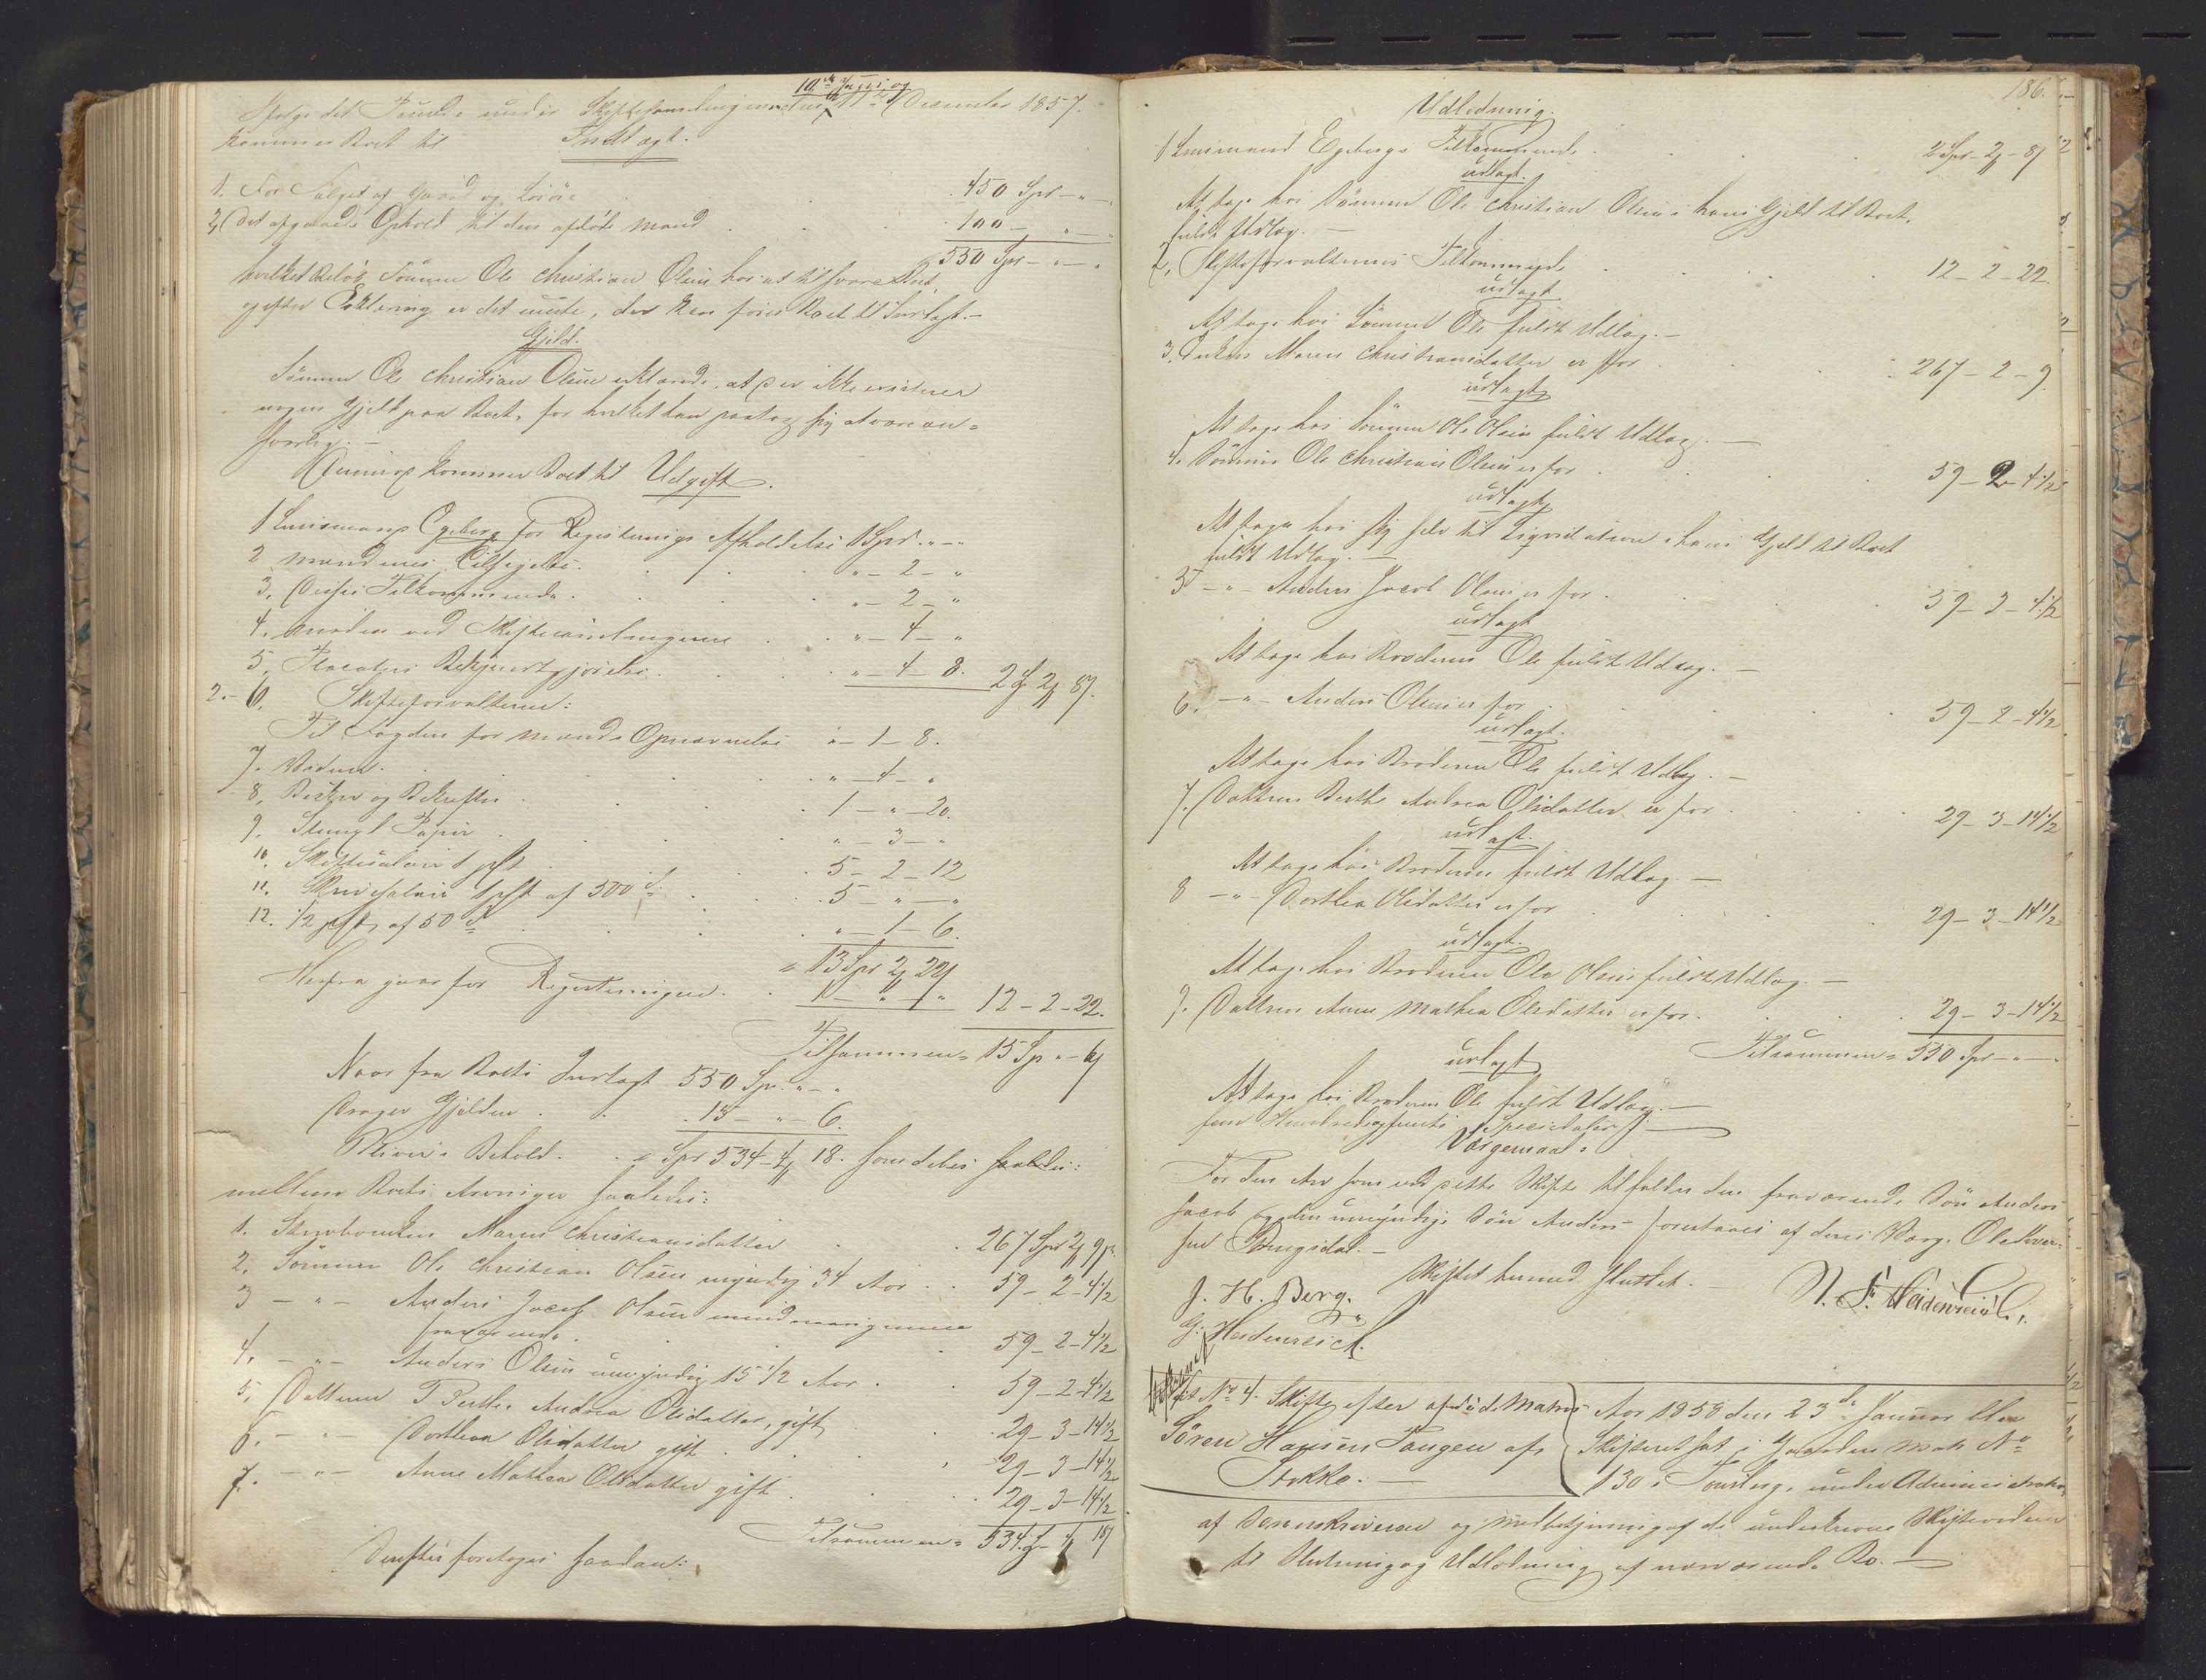 10de August og
Ifølge det Passerede under Skiftesamlingerne den 11te December 1857.
kommer Boet til Indtægt.
1. For Salget af Gaard og Løsøre 450 Spd - " - "
2, Det afgivende Ophold til den afdøde Mand 100 - " - "
550 Spd - " - "
hvilket Beløb Sønnen Ole Christian Olsen har at tilsvare Boet,
og efter Erklæring er det eneste, der kan føres Boet til Indtægt. -
Gjeld.
Sønnen Ole Christian Olsen erklærede, at der ikke existerer
nogen Gjeld paa Boet, for hvilket han paatog sig at være an-
svarlig. -
Derimod kommer Boet til Udgift.
1 Lensmand Egeberg for Registerings Afholdelse 1 Spd " - "
2 Mændenes Tilsigelse. " - 2 - "
3. Disses Tilkommende. " - 2 - "
4. Møden ved Skiftesamlingerne " - 4 - "
5, Placatens Bekjendtgjørelse. " - 4 - 8. 2 Spd 2 8
2. - 6. Skifteforvalteren:
Til Fogden for Mænds Opnævnelse " - 1 - 8.
7. Vidner " - 4 - "
8, Beskr og Bekræftr 1 - " - 20.
9. Stempl Papir " - 3 - "
10. Skiftesalair 1 pCt 5 - 2 - 12
11. Skriversalair 1 pCt af 500 d. 5 - " - "
12. 1/2 pCt af 50 d " - 1 - 6.
= 13 Spd 2 22
Herfra gaar for Registeringen. 1 - " - " 12 - 2 - 22.
Tilsammen = 15 Sp " - 6
Naar fra Boets Indtægt 550 Spd. " - "
Drages Gjelden 15 - " - 6.
Bliver i Behold. = Spd 534 - 4 18. som deles saaledes:
mellem Boets Arvinger saaledes:
1. Stervboenken Maren Christiansdatter 267 Spd 2 9
2. Sønnen Ole Christian Olsen myndig 34 Aar 59 - 2 - 4 1/2
3 - " - Anders Jacob Olsen
fraværende. 59 - 2 - 4 1/2
4. - " - Anders Olsen umyndig 15 1/2 Aar. 59 - 2 - 4 1/2
5, Datteren Berthe Andrea Olsdatter, gift 29 - 3 - 14 1/2
6. - " - Dorthea Olsdatter gift 29 - 3 - 14 1/2
7. - " - Anne Mathea Olsdatter gift 29 - 3 - 14 1/2
Tilsammen = 534 - 4 18
Derefter foretoges saadan:
186.
Udlodning.
1 Lensmand Egebergs Tilkommende 2 Spd - 2 - 8
udlagt.
At tage hos Sønnen Ole Christian Olsen i hans Gjeld til Boet.
fuldt Udlæg. -
2, Skifteforvalterens Tilkommende 12 - 2 - 22.
udlagt
At tage hos Sønnen Ole fuldt Udlæg. -
3. Enken Maren Christiansdatter er for 267 - 2 - 9.
udlagt
At tage hos Sønnen Ole Olsen fuldt Udlæg. -
4. Sønnen Ole Christian Olsen er for 59 - 2 - 4 1/2
udlagt
At tage hos sig selv til Liqvidation i hans Gjeld til Boet
fuldt Udlæg. -
5 - " - Anders Jacob Olsen er for 59 - 2 - 4 1/2
udlagt
At tage hos Broderen Ole fuldt Udlæg. -
6. - " - Anders Olsen er for 59 - 2 - 4 1/2
udlagt.
At tage hos Broderen Ole fuldt Udlæg. -
7. Datteren Berthe Andrea Olsdatter er for 29 - 3 - 14 1/2
udlagt.
At tage hos Broderen fuldt Udlæg. -
8 - " - Dorthea Olsdatter er for 29 - 3 - 14 1/2
udlagt.
At tage hos Broderen Ole Olsen fuldt Udlæg. -
9. Datteren Anne Mathea Olsdatter er for. 29 - 3 - 14 1/2
udlagt Tilsammen = 550 Spd - " - "
At tage hos Broderen Ole fuldt Udlæg. -
fem Hundrede og femti Speciedaler. -
Værgemaal.
For den Arv som ved dette Skifte tilfalder den fraværende Søn Anders
Jacob og den umyndige Søn Anders foretoges af deres Værge Ole Iver-
sen Brugsdal. -
Skiftet hermed sluttet.
J. H. Berg. N. F. Heidenreich.
G. Heidenreich.
No 4. Skifte efter afdøde Matros
Søren Hansen Tangen af
Stokke. -
Aar 1858 den 23de Januar blev
Skifteret sat i Gaarden Matr No
130 i Tønsberg, under Administration
af Sorenskriveren og medbetjening af de underskrevne Skiftevidner
til Slutning og Udlodning af nærværende Bo. -